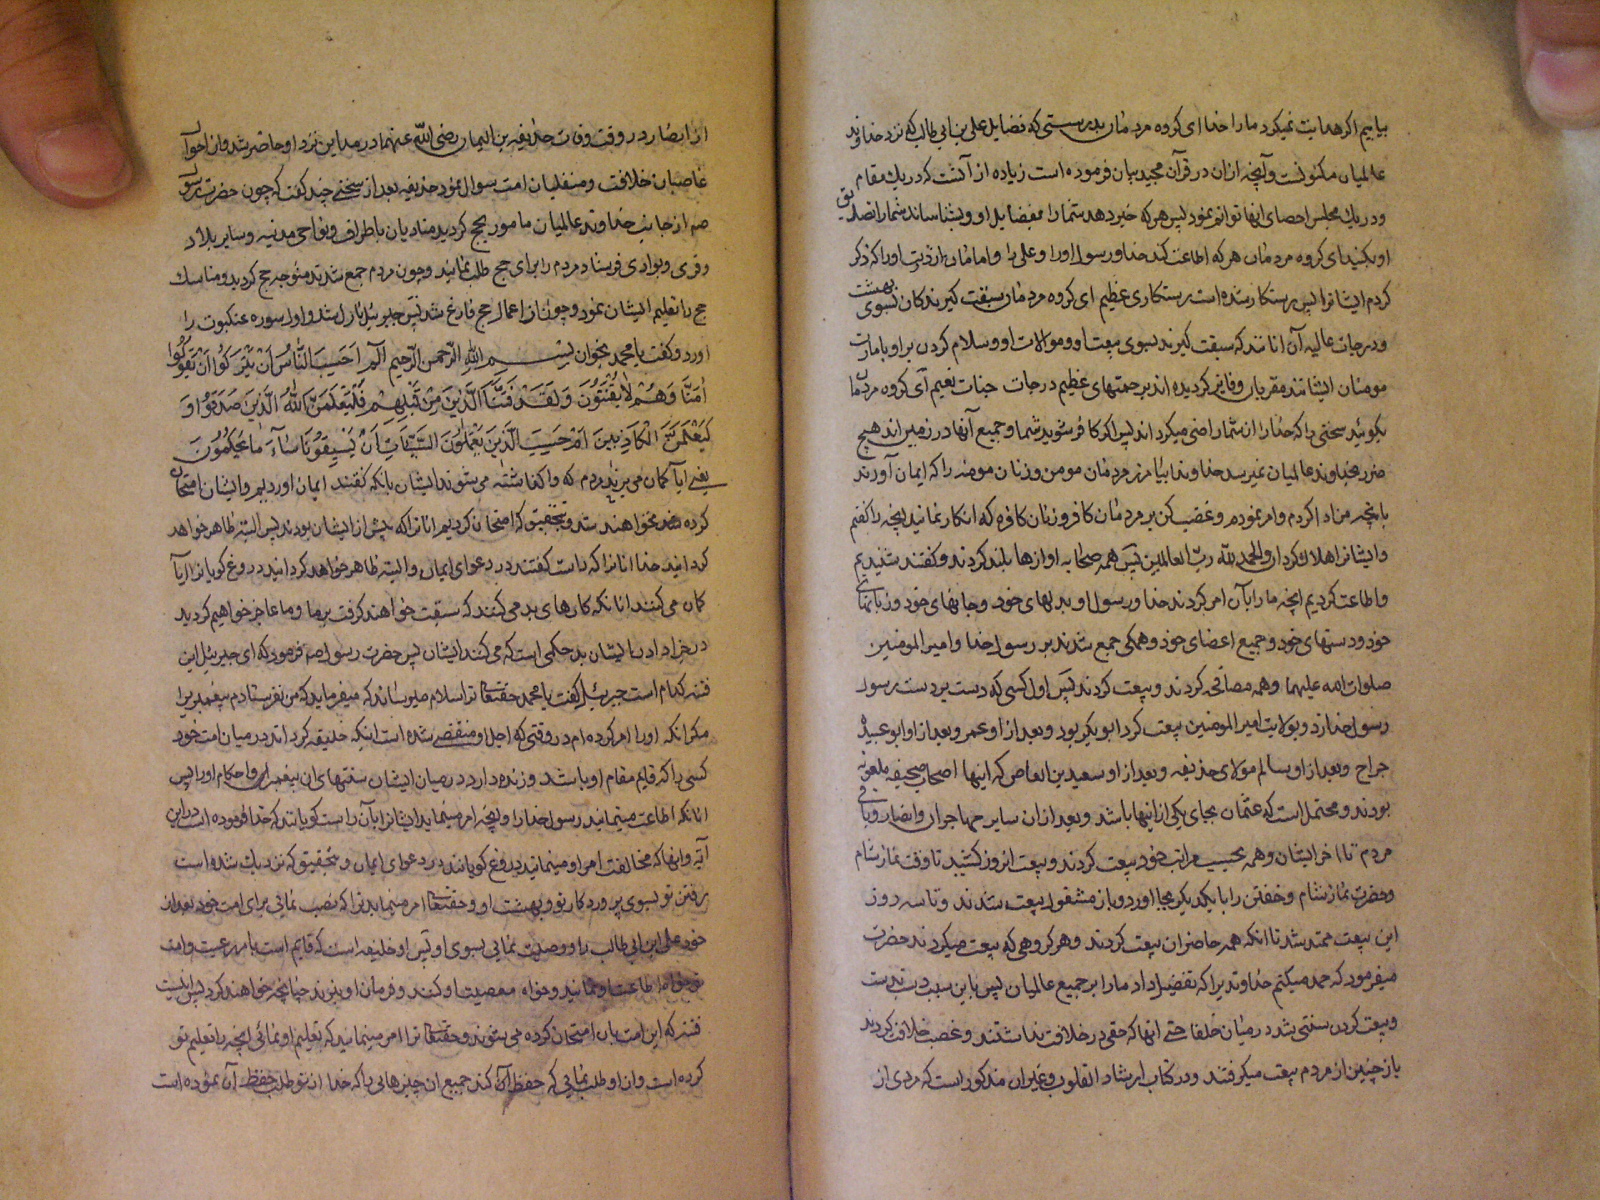 بیابیم اکر هدایت نمیکرد ما را خدا ای کروه مردمان بدرستی که فضایل علی بن ابی طالب که نزد خداوند
عالمیان مکنونست و آنچه ازان در قرآن مجید بیان فرموده است زیاده از آنست که در یک مقام
و در یک مجلس احصای انها توانم نمود پس هر که خبر دهد شما را بفضایل او و بشناساند شما را تصدیق
او بکنید ای کروه مردمان هر که اطاعت کند خدا و رسول او را و علی را و امامان از ذریت او را که ذکر
کردم ایشانرا پس رستکار شده است رستکاری عظیم ای کروه مردمان سبقت کیرندکان بسوی بهشت
و درجات عالیه آن انانند که سبقت کیرند بسوی بیعت او و موالات او و سلام کردن بر او بامارت
مومنان ایشانند مقربان و فایز کردیده اند برحمتهای عظیم در جات جنات نعیم ای کروه مردمان
بکوئید سخنی را که خدا را از شما راضی میکرداند پس اکر کافر شوید شما و جمیع آنها در زمین اند هیچ
ضرر بخداوند عالمیان نمیرسد خداوندا بیامرز مردمان مومن و زنان مومنه را که ایمان آوردند
بانچه من ادا کردم و امر نمودم و غضب کن بر مردمان کافر و زنان کافره که انکار نمایند انچه را کفتم
و ایشانرا هلاک کردان والحمد لله رب العالمین پس همه صحابه اوازها بلند کردند و کفتند شنیدیم
و اطاعت کردیم انچه ما را بآن امر کردند خدا و رسول او بدلهای خود و جانهای خود و زبانهای
خود و دستهای خود و جمیع اعضای خود و همکی جمع شدند بر رسول خدا و امیر المومنین
صلوات الله علیهما و همه مصافحه کردند و بیعت کردند پس اول کسی که دست بر دست رسول
رسول خدا زد و بولایت امیر المومنین بیعت کرد ابوبکر بود و بعد از او عمر و بعد از او ابو عبیدهٔ
جراح و بعد از او سالم مولای حذیفه و بعد از او سعید بن العاص که اینها اصحاب صحیفه ملعونه
بودند و محتمل است که عثمان بجای یکی از اینها باشد و بعد ازان سایر مهاجران و انصار و باقی
مردم تا اخر ایشان و همه بحسب مراتب خود بیعت کردند و بیعت انروز کشید تا وقت نماز شام
و حضرت نماز شام و خفتن را با یکدیکر بجا اورد و باز مشغول بیعت شدند و تا سه روز
این بیعت ممتد شد تا انکه همه حاضران بیعت کردند و هر کروهی که بیعت میکردند حضرت
میفرمود که حمد میکنم خداوندیرا که تفضیل داد ما را بر جمیع عالمیان پس باین سبب دست بدست
و بیعت کردن سنتی شد در میان خلفا حتی انها که حقی در خلافت نداشتند و غصب خلافت کردند
باز چنین از مردم بیعت میکرفتند و در کتاب ارشاد القلوب و غیر ان مذکور است که مردی از
از انصار در وقت وفات حذیفه بن الیمان رضی الله عنهما در مداین نزد او حاضر شد و از احوال
غاصبان خلافت و متقلبان امت سوال نمود حذیفه بعد از سخنی چند کفت که چون حضرت رسول
صم از جانب خداوند عالمیان مامور بحج کردید منادیان باطراف و نواحی مدینه و سایر بلاد
و قری و بوادی فرستاد مردم را برای حج طلب نمایند و چون مردم جمع شدند متوجه حج کردید و مناسک
حج را تعلیم ایشان نمود و چون از اعمال حج فارغ شد پس جبرئیل نازل شد و اول سوره عنکبوت را
اورد و کفت یا محمد بخوان بسم الله الرحمن الرحیم الم احسب الناس ان یترکوا ان یقولوا
امنا و هم لا یفتنون ولقد فتنا الذین من قبلهم فلیعلمن الله الذین صدقوا و
لیعلمن الکاذبین ام حسب الذین یعملون السیئات ان یسبقونا ساء ما یحکمون
یعنی ایا کمان می برند مردم که واکذاشته می شوند ایشان بانکه کفتند ایمان اوردیم و ایشان امتحان
کرده نخواهند شد و بتحقیق که امتحان کردیم انانرا که پیش از ایشان بودند پس البته ظاهر خواهد
کردانید خدا انانرا که راست کفتند در دعوای ایمان و البته ظاهر خواهد کردانید دروغ کویانرا ایا
کمان می کنند انانکه کارهای بد می کنند که سبقت خواهند کرفت بر ما و ما عاجز خواهیم کردید
در جزا دادن ایشان بد حکمی است که می کنند ایشان پس حضرت رسول صم فرمود که ای جبرئیل این
فتنه کدام است جبرئیل کفت یا محمد حقتعالی ترا سلام میرساند که میفرماید که من نفرستادم پیغمبریرا
مکر انکه او را امر کرده ام در وقتی که اجل او منقضی شده است اینکه خلیفه کرداند در میان امت خود
کسی را که قایم مقام او باشد و زنده دارد در میان ایشان سنتهای ان پیغمبر و احکام او را پس
انانکه اطاعت مینمایند رسول خدا را و انچه امر مینماید ایشانرا بآن راست کویانند که خدا فرموده است در این
آیه و انها که مخالفت امر او مینمایند دروغ کویانند در دعوای ایمان و بتحقیق که نزدیک شده است
رفتن تو بسوی پروردکار تو و بهشت او و حقتعالی امر مینماید ترا که نصب نمائی برای امت خود بعد از
خود علی ابن ابی طالب را و وصیت نمائی بسوی او پس او خلیفه است که قایم است بامر رعیت و امت
تو خواه اطاعت او نمایند و خواه معصیت او کنند و فرمان او نبرند چنانچه خواهند کرد پس اینست
فتنه که این امت بان امتحان کرده می شوند و حقتعالی ترا امر مینماید که تعلیم او نمائی انچه را تعلیم تو
کرده است و از او طلب نمائی که حفظ آن کند جمیع ان چیزهایی را که خدا از تو طلب حفظ آن نموده است